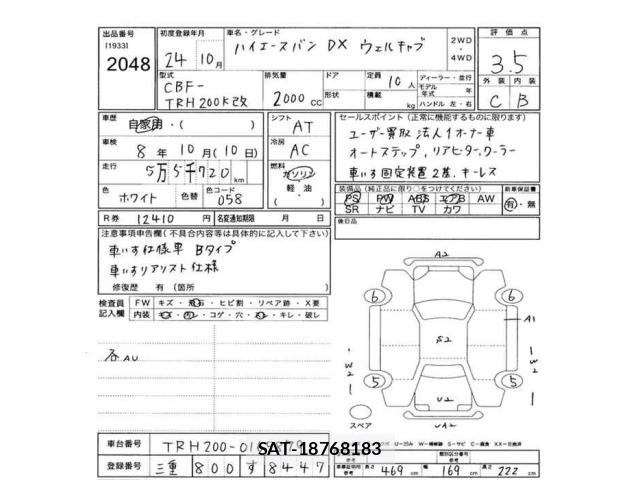 出品番号
[1933]
2048
初度登録年月
24年10月
車名・グレード
ハイエースバン DX ウェルキャブ
2WD
・
4WD
評価点
3.5
外装 内装
C B
型式
CBF-
TRH200K改
排気量
2000 CC
ドア
形状
定員 10 人
積載 kg
ディーラー・並行
モデル
年式 年
ハンドル 左・右
車歴
自家用・( )
シフト
AT
車検
8年10月(10日)
冷房
AC
走行
5万5千720km
燃料
ガソリン
軽油
( )
色
ホワイト
色替
色コード
058
R券 12410 円
名変通知期限 月 日
セールスポイント(正常に機能するものに限ります)
ユーザー買取 法人1オーナー車
オートステップ,リアヒーター,クーラー
車いす固定装置2基.キーレス
装備品(純正品に限り○をつけてください)
PS PW ABS エアB AW
SR ナビ TV カワ
新車保証書
有・無
後日品
注意事項申告欄(不具合内容等は具体的に記入して下さい)
車いす仕様車 Bタイプ
車いすリアリスト仕様
修復歴 有(箇所 )
検査員
記入欄
FW キズ・飛石・ヒビ割・リペア跡・X要
内装 キズ・汚レ・コゲ・穴・ヌレ・キレ・破レ
AU
A2
6
6
A1
S2
W2
W2
5
5
U2
UA2
スペア
車台番号
登録番号 三重 800 す 8447
SAT-18768183
車両区分番号
参考
長さ 469 cm
幅 169 cm
高さ 222 cm